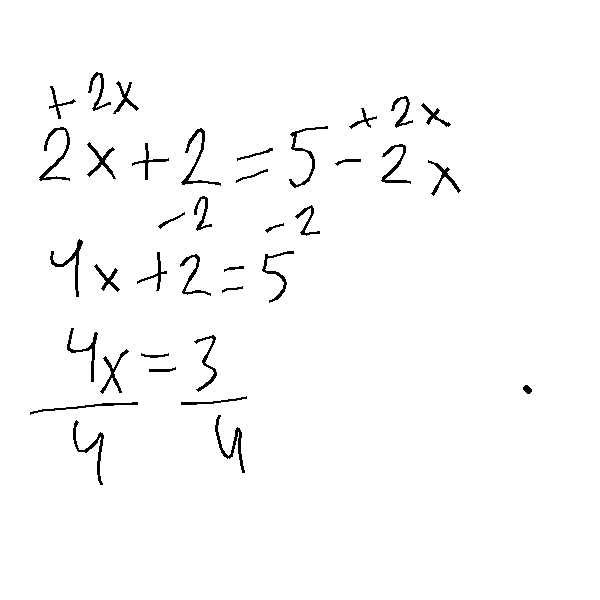 +2x +2x
2x+2=5-2x
-2 -2
4x+2=5
4x=3
4 4